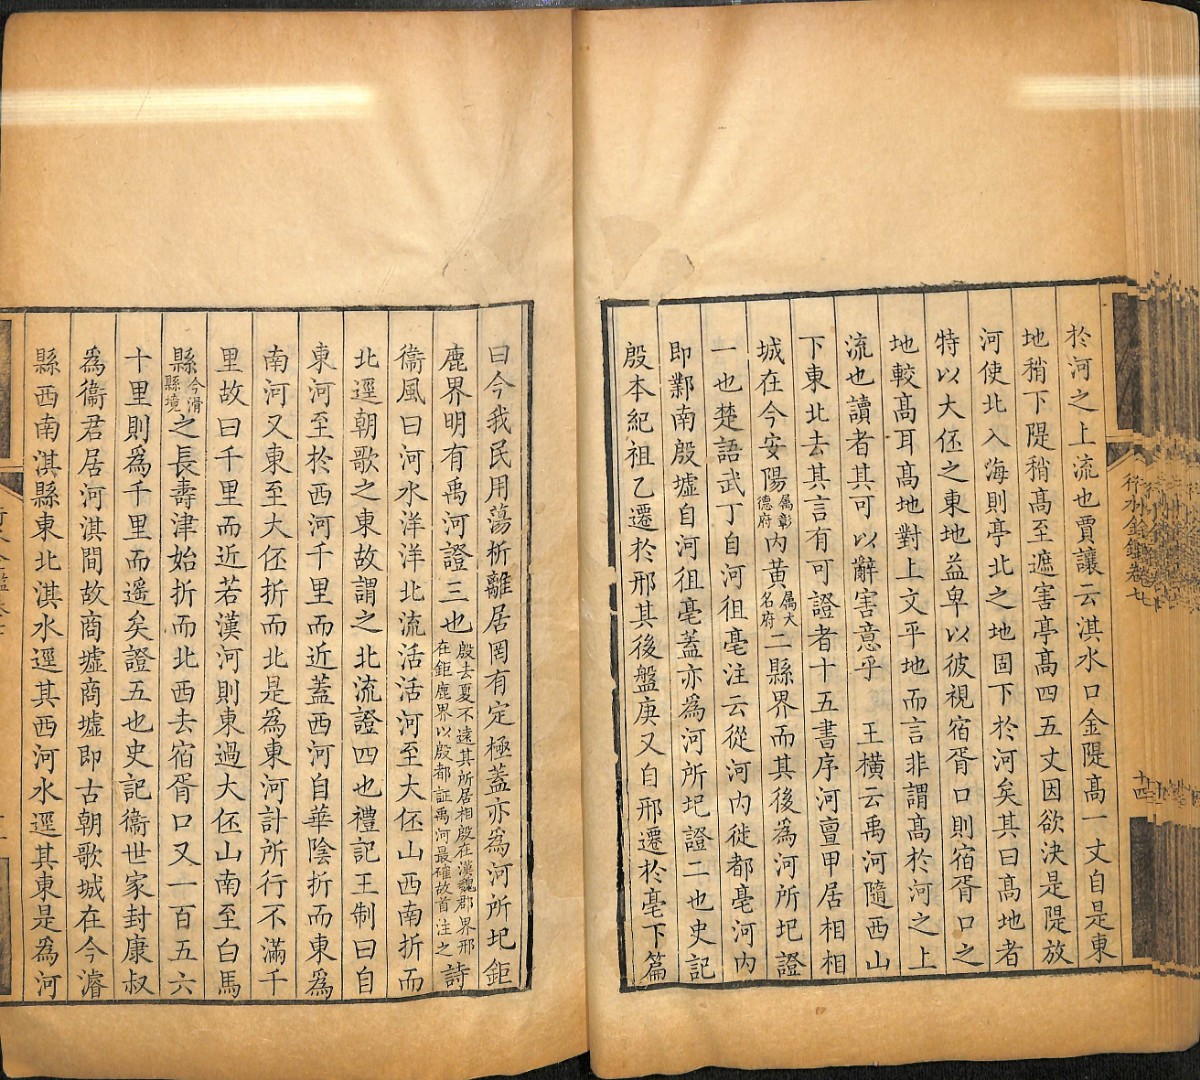 於河之上流也賈讓云淇水口金隄髙一丈自是東
地稍下隄稍髙至遮害亭髙四五丈因欲決是隄放
河使北入海則亭北之地固下於河矣其曰髙地者
特以大伾之東地益卑以彼視宿胥口則宿胥口之
地較髙耳髙地對上文平地而言非謂髙於河之上
流也讀者其可以辭害意乎　王横云禹河隨西山
下東北去其言有可證者十五書序河亶甲居相相
城在今安陽屬彰德府内黄屬大名府二縣界而其後為河所圯證
一也楚語武丁自河徂亳注云從河内徙都亳河内
即鄴南殷墟自河徂亳蓋亦為河所圯證二也史記
殷本紀祖乙遷於邢其後盤庚又自邢遷於亳下篇
行水金鑑卷七
十四
曰今我民用蕩析離居罔有定極蓋亦為河所圯鉅
鹿界明有禹河證三也殷去夏不遠其所居相殷在漢魏郡界邢在鉅鹿界以殷都証禹河最確故首注之詩
衞風曰河水洋洋北流活活河至大伾山西南折而
北逕朝歌之東故謂之北流證四也禮記王制曰自
東河至於西河千里而近蓋西河自華陰折而東為
南河又東至大伾折而北是為東河計所行不滿千
里故曰千里而近若漢河則東過大伾山南至白馬
縣今滑縣境之長壽津始折而北西去宿胥口又一百五六
十里則為千里而遥矣證五也史記衞世家封康叔
為衞君居河淇間故商墟商墟即古朝歌城在今濬
縣西南淇縣東北淇水逕其西河水逕其東是為河